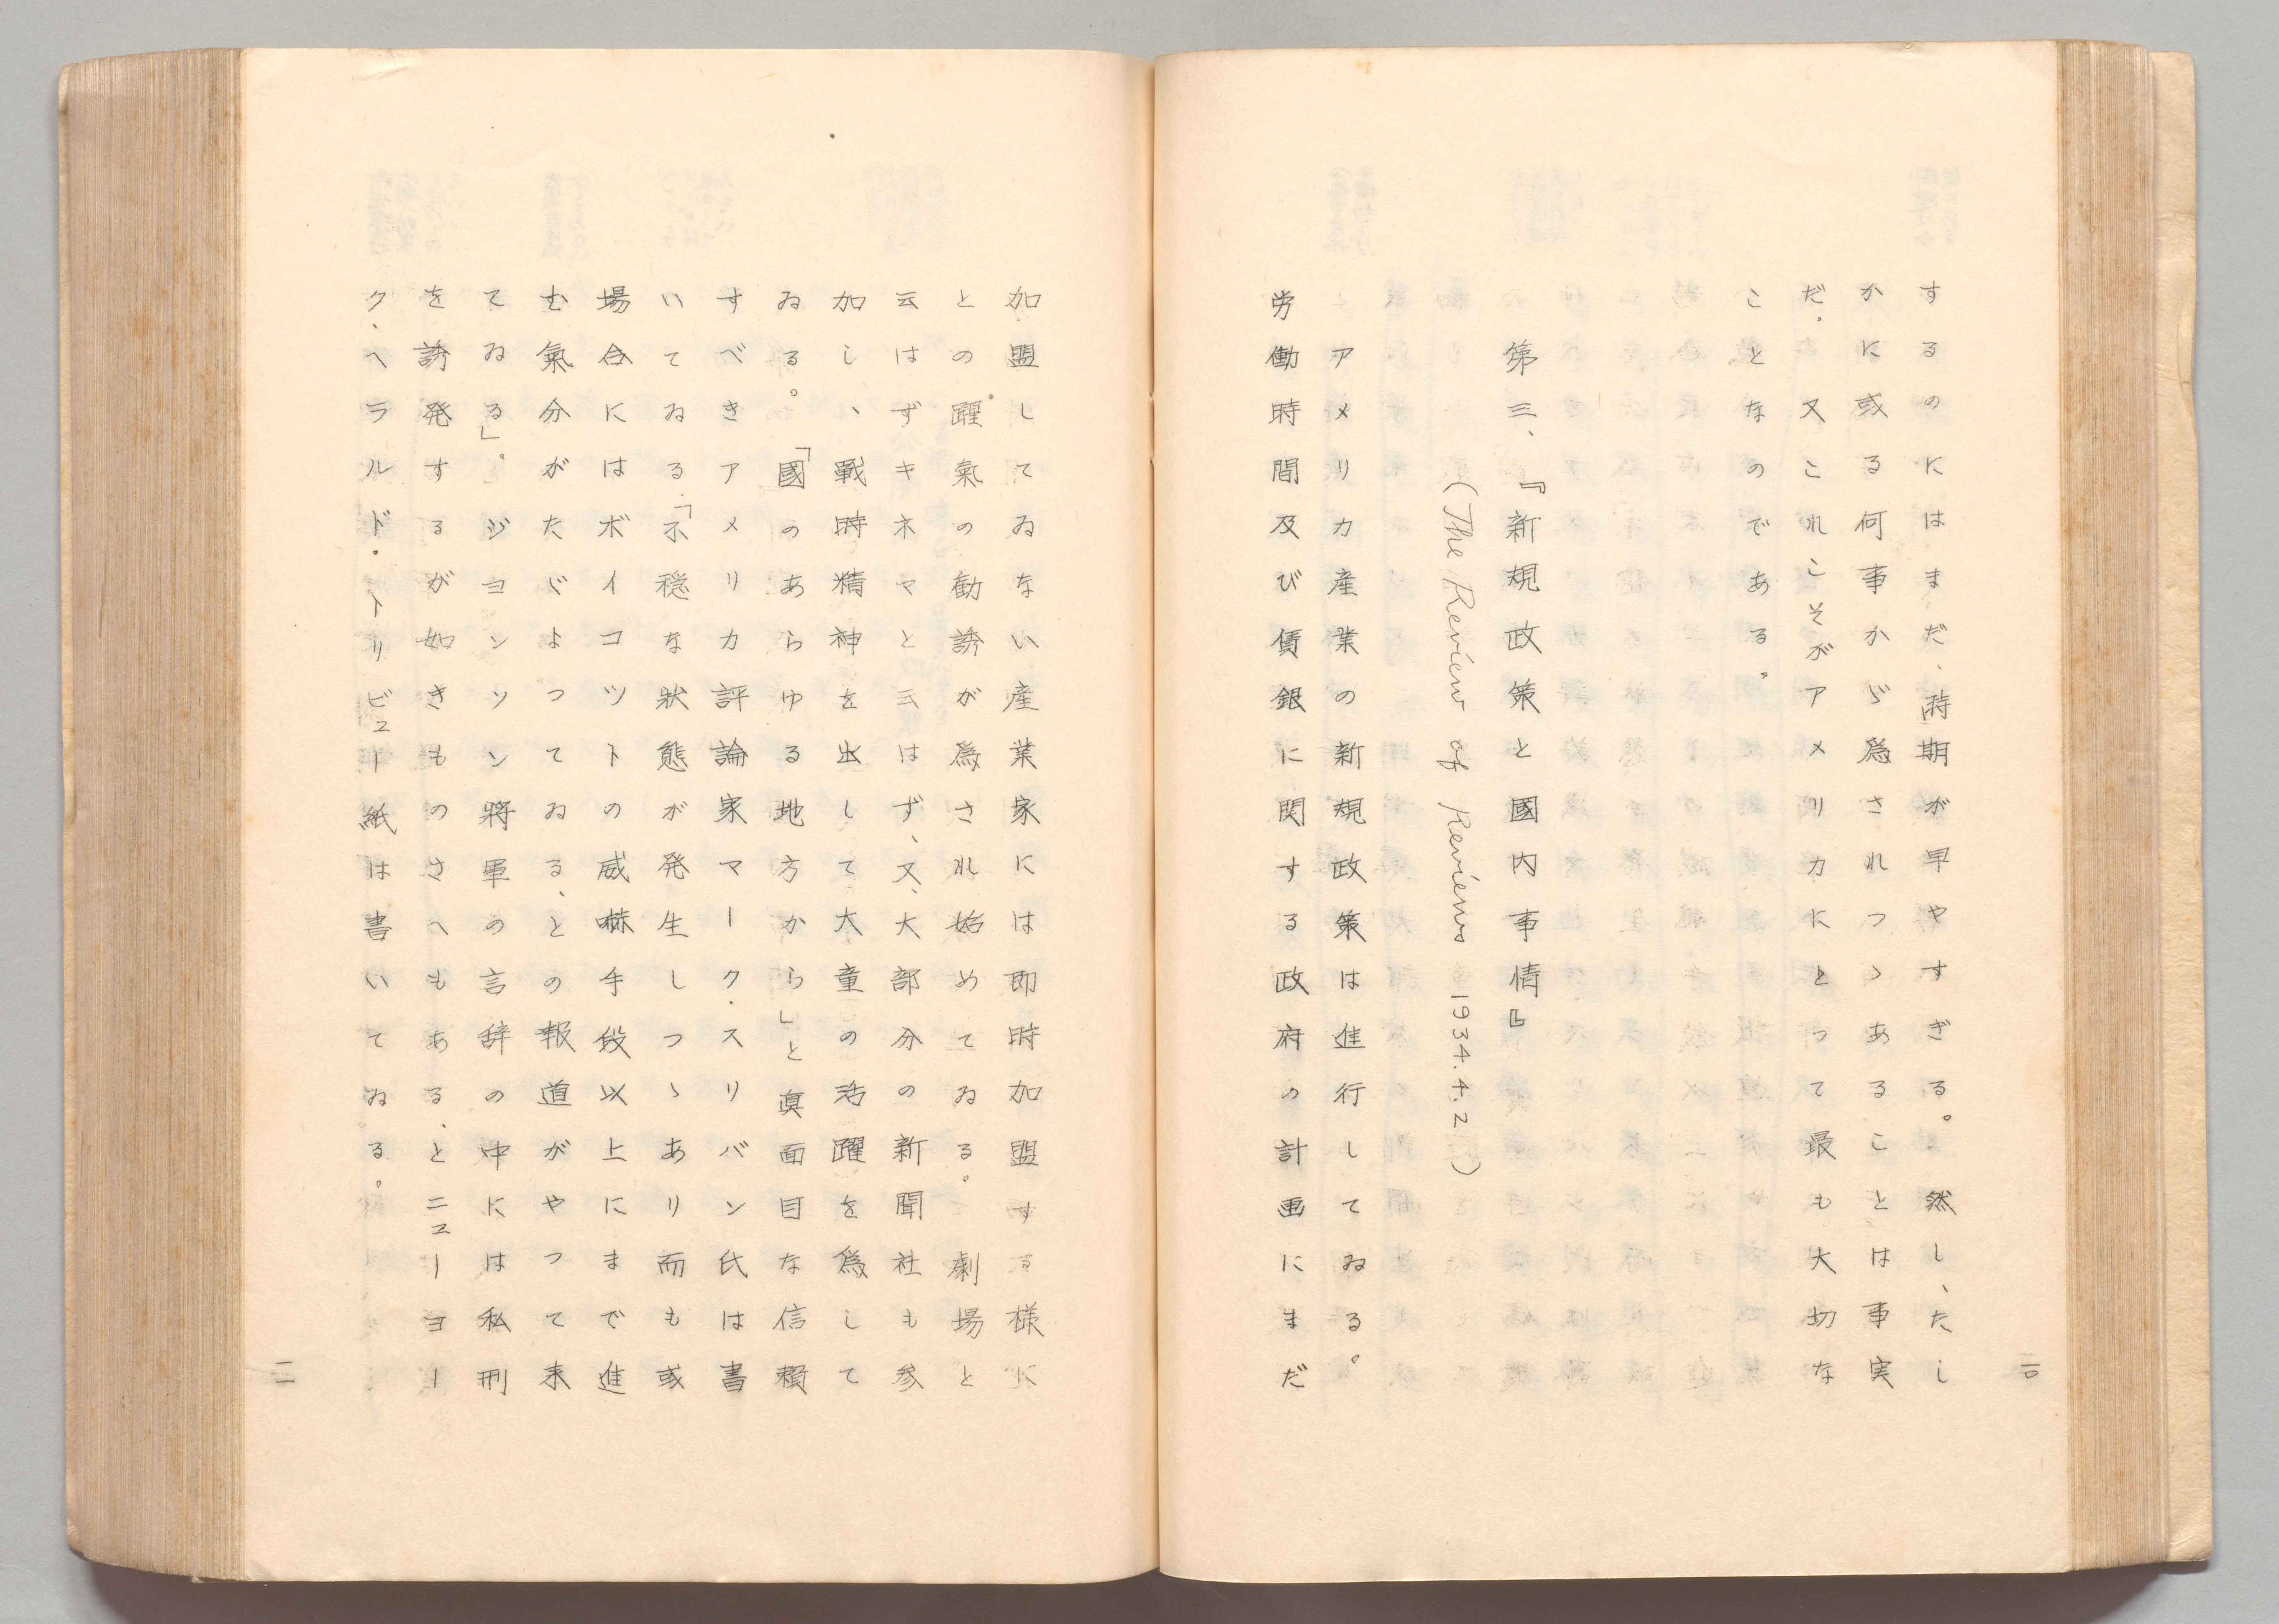 するのにはまだ、時期が早やすぎる。然し、たし
かに或る何事かゞ為されつゝあることは事実
だ。又これこそがアメリカにとって最も大切な
ことなのである。
第三、『新規政策と國内事情』
(The Review of Reviews 1934.4.2)
アメリカ産業の新規政策は進行してゐる。
労働時間及び賃銀に関する政府の計画にまだ
二〇
加盟してゐない産業家には即時加盟する様に
との躍氣の勧誘が為され始めてゐる。劇場と
云はずキネマと云はず、又、大部分の新聞社も参
加し、戰時精神を出して大童の活躍を為して
ゐる。「國のあらゆる地方から」と眞面目な信頼
すべきアメリカ評論家マーク・スリバン氏は書
いてゐる「不穏な狀態が発生しつゝあり而も或
場合にはボイコツトの威嚇手段以上にまで進
む氣分がたゞよつてゐる、との報道がやつて来
てゐる」。ジヨンソン將軍の言辞の中には私刑
を誘発するが如きものさへもある、とニユーヨー
ク、ヘラルド・トリビユー紙は書いてゐる。
二一